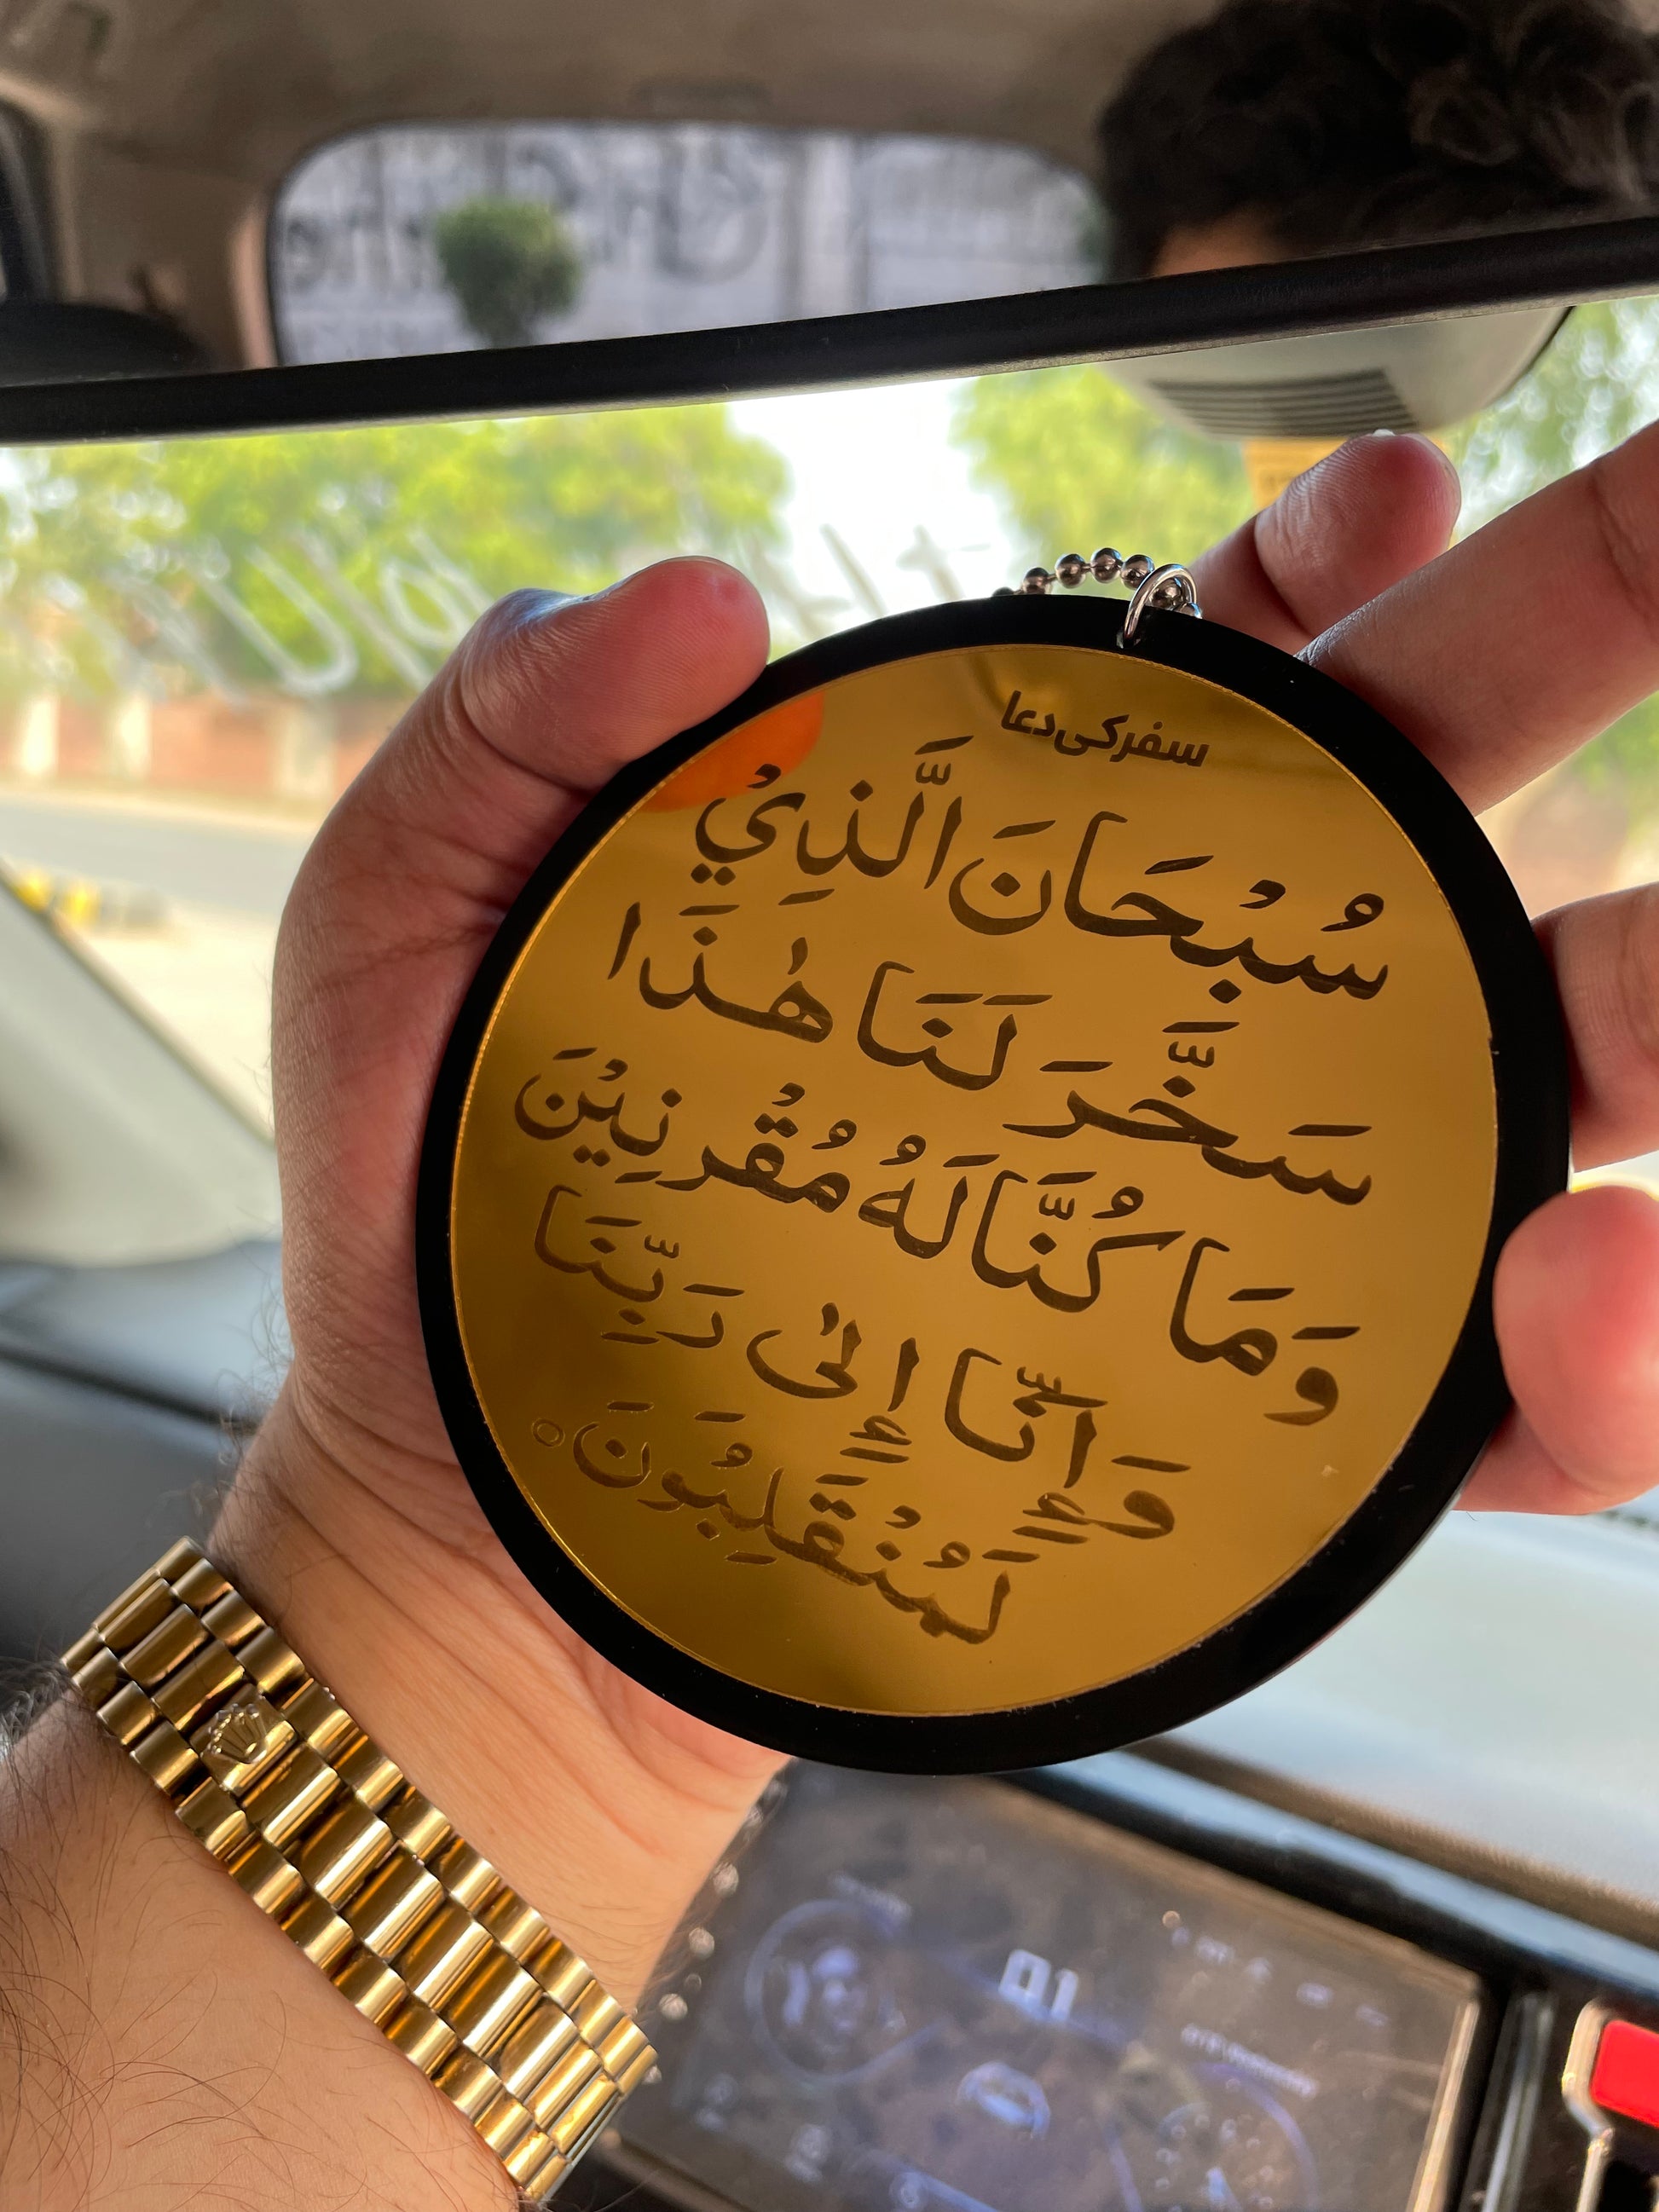 سفر کی دعا
سُبْحَانَ الَّذِيْ
سَخَّرَ لَنَا هٰذَا
وَمَا كُنَّا لَهُ مُقْرِنِيْنَ
وَإِنَّا إِلىٰ رَبِّنَا
لَمُنْقَلِبُونَ ○